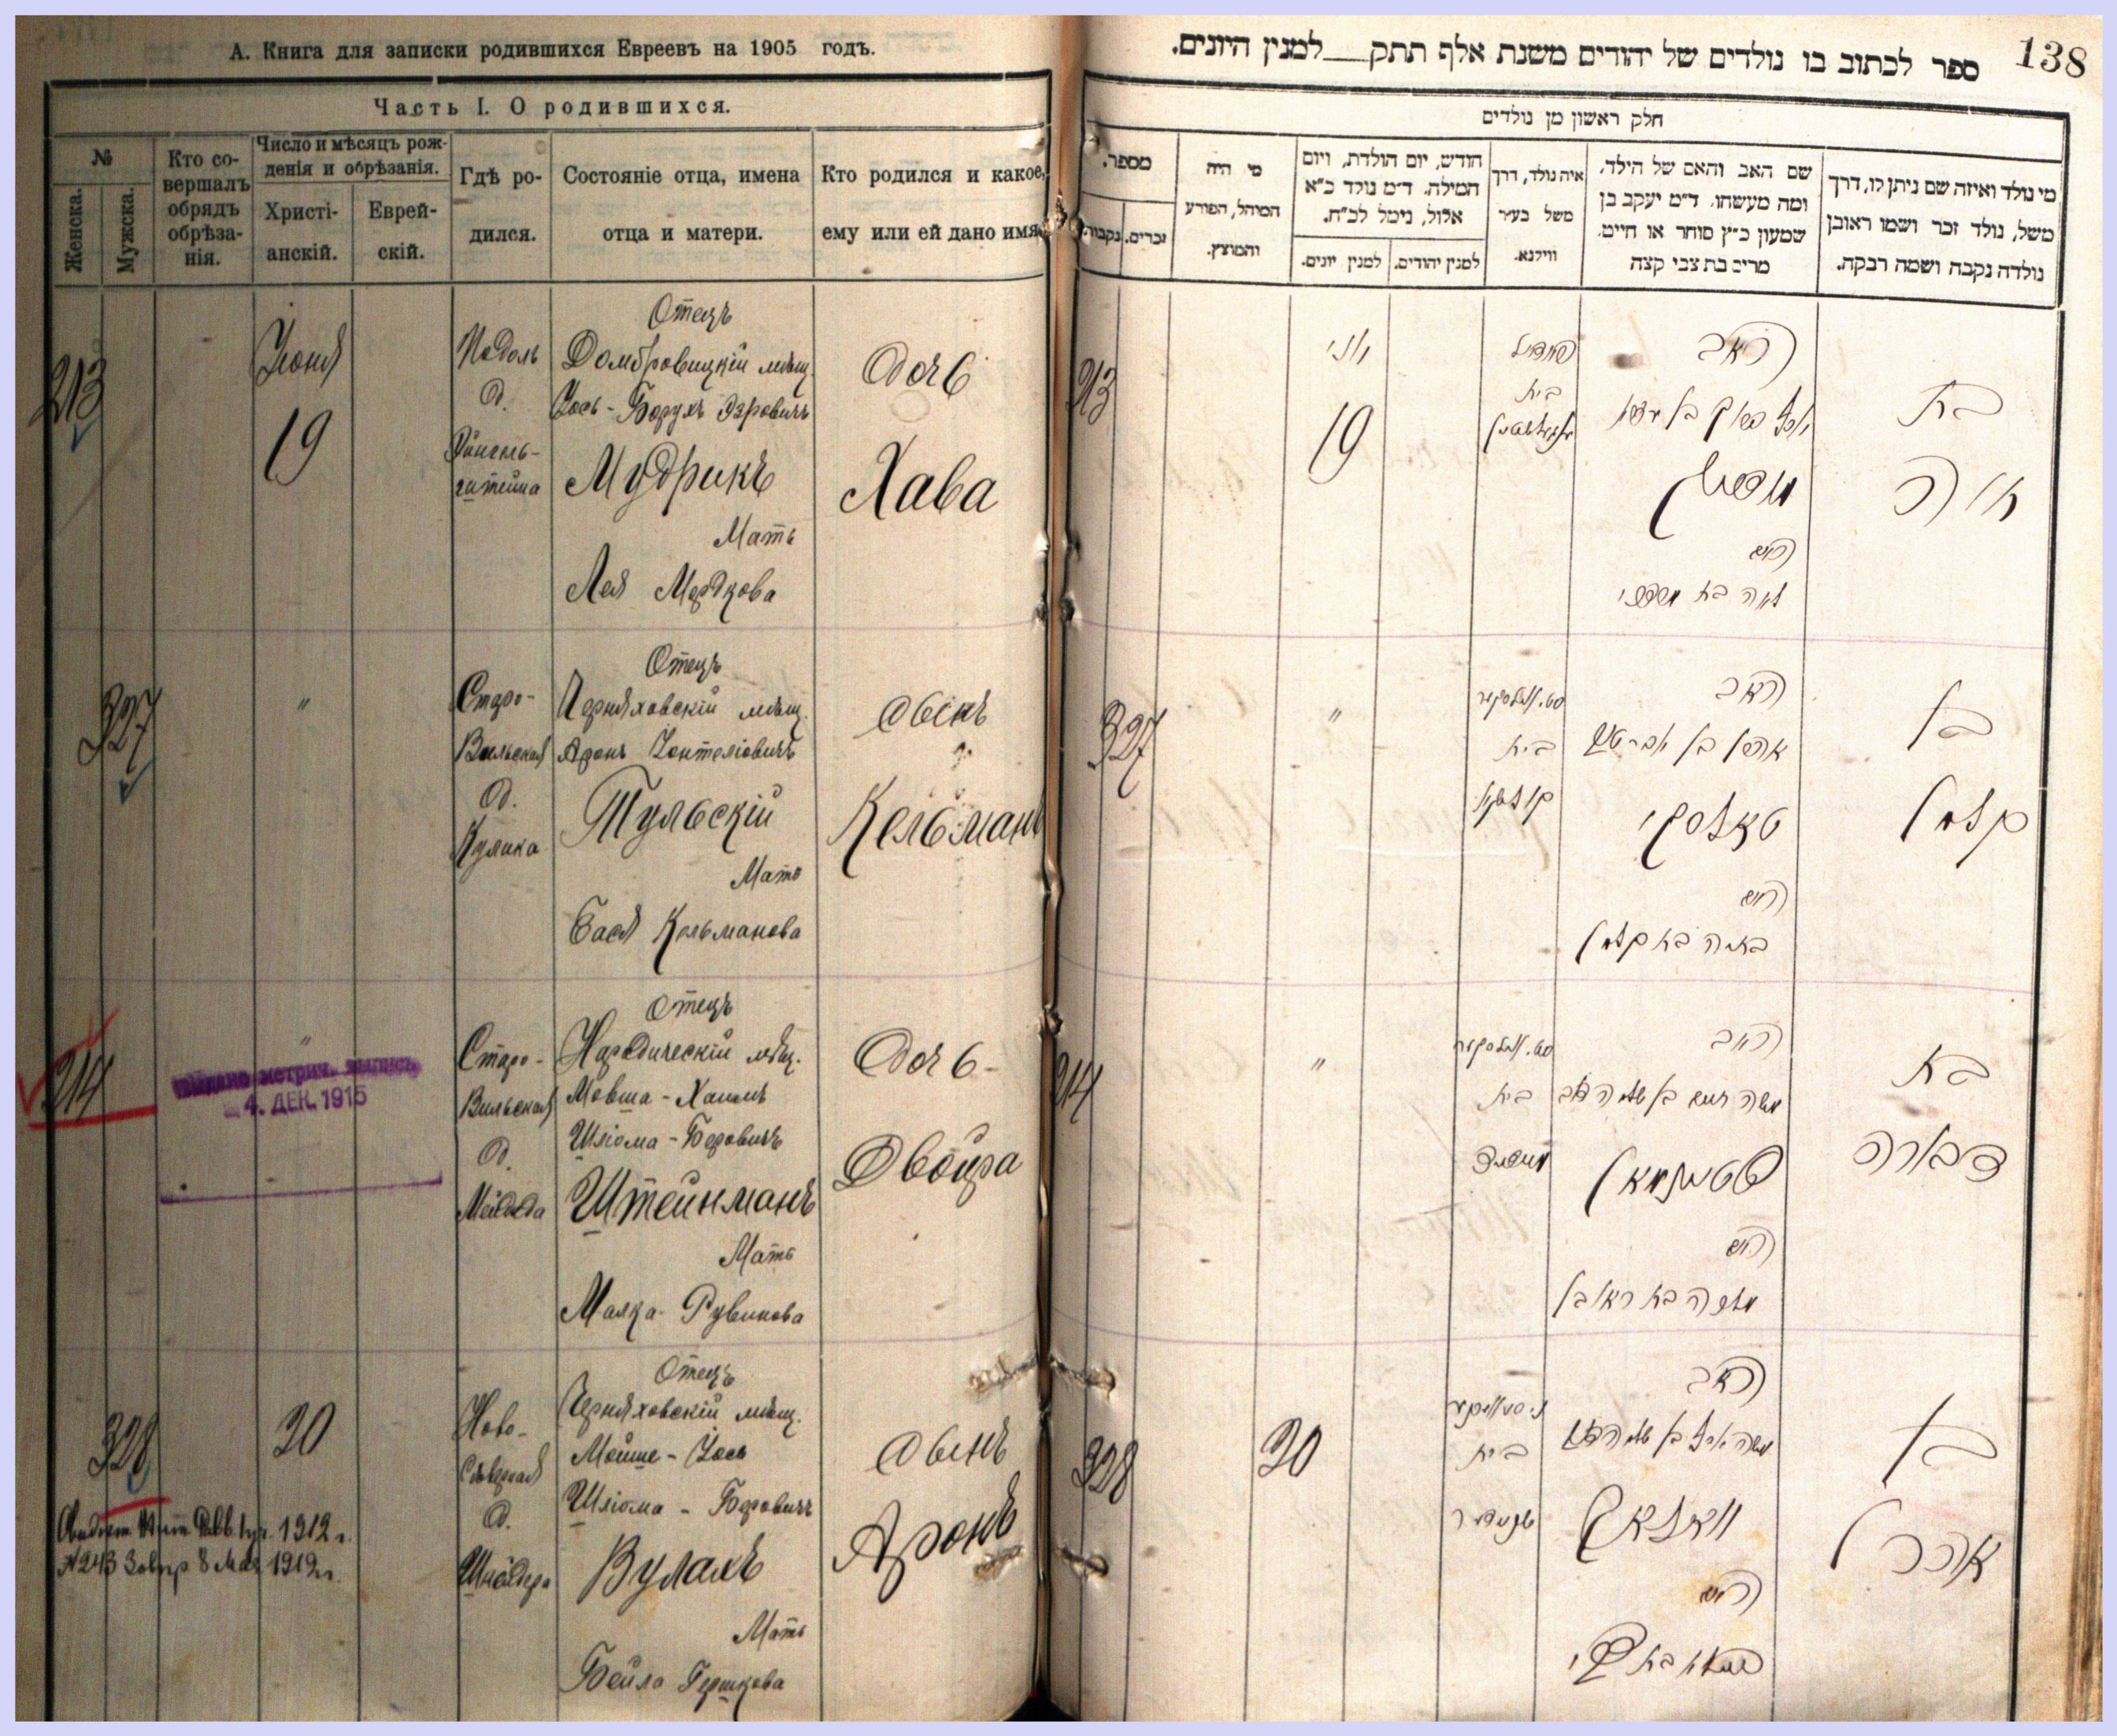 А. Книга для записки родившихся Евреевъ на 1905 годъ.
Часть I. О родившихся.
№
Женска.
Мужска.
Кто со-
вершалъ
обрядъ
обрѣза-
нія.
Число и мѣсяцъ рож-
денія и обрѣзанія.
Христі-
анскій.
Еврей-
скій.
Гдѣ ро-
дился.
Состояніе отца, имена
отца и матери.
Кто родился и какое,
ему или ей дано имя
213
Іюня
19
Подоль
д.
Отецъ
Домбровицкій мѣщ.
Іось-Борухъ Эзровичъ
Мудрикъ
Мать
Лея Мордкова
Дочь
Хава
327
"
Старо-
Вильская
д.
Кулика
Отецъ
Черняховскій мѣщ.
Аронъ
Тульскій
Мать
Бася Кельманова
Сынъ
Кельманъ
214
"
Выдана метрич. выпись
4. ДЕК. 1915
Старо-
Вильская
д.
Отецъ
Народическій мѣщ.
Мовша-Хаимъ
Шліома-Беровичъ
Штейнманъ
Мать
Малка Рувинова
Дочь-
Двойра
328
20
Ново-
Сѣверная
д.
Шнейдера
Отецъ
Черняховскій мѣщ.
Мойше-Іось
Шліома-Беровичъ
Вулахъ
Мать
Бейла Гершкова
Сынъ
Аронъ
1912 г.
№ 243 8 Мая 1912 г.
138
ספר לכתוב בו נולדים של יהודים משנת אלף תתק__למנין היונים.
חלק ראשון מן נולדים
מספר.
נקבות.
זכרים.
מי היה
המוהל, הפורע
והמוצץ.
חודש, יום הולדת, ויום
המילה. ד"מ נולד כ"א
אלול, נימל לכ"ח.
למנין יונים.
למנין יהודים.
איה נולד, דרך
משל בעיר
ווילנא.
שם האב והאם של הילד,
ומה מעשהו. ד"מ יעקב בן
שמעון כ"ץ סוחר או חייט.
מרים בת צבי קצה
מי נולד ואיזה שם ניתן לו, דרך
משל, נולד זכר ושמו ראובן
נולדה נקבה ושמה רבקה.
213
יוני
19
בית
האב
האם
לאה בת מרדכי
בת
חוה
327
"
בית
האב
אהרן בן
טולסקי
האם
באסיה בת קלמן
בן
קלמן
214
"
בית
האב
משה חיים בן שלמה דוב
שטיינמאן
האם
מלכה בת ראובן
בת
דבורה
328
20
בית
שניידער
האב
משה יוסף בן שלמה דוב
וואלאך
האם
ביילא בת צבי
בן
אהרן